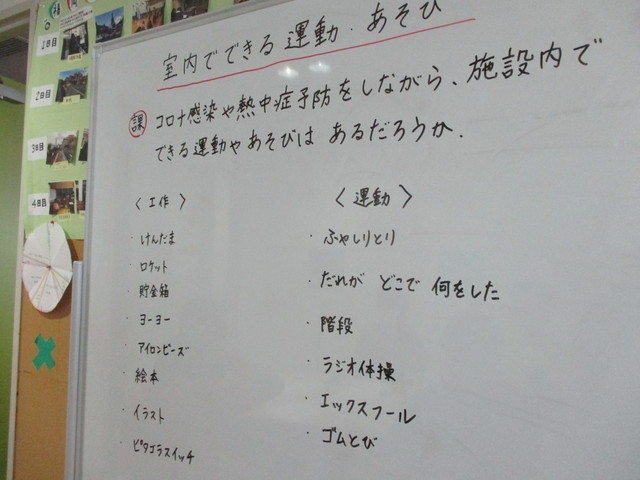 室内でできる運動・あそび
課 コロナ感染や熱中症予防をしながら、施設内で
できる運動やあそびは あるだろうか.
〈工作〉
・けんだま
・ロケット
・貯金箱
・ヨーヨー
・アイロンビーズ
・絵本
・イラスト
・ピタゴラスイッチ
〈運動〉
・ふやしりとり
・だれが どこで 何をした
・階段
・ラジオ体操
・エックスプール
・ゴムとび
1日目
2日目
3日目
4日目